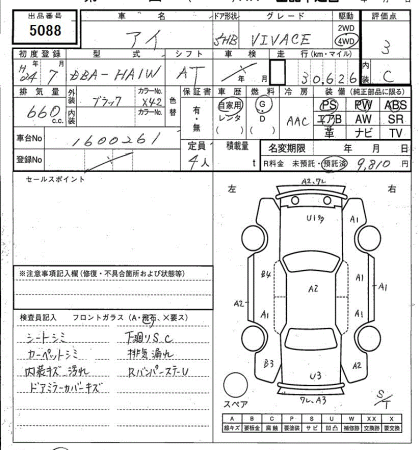 出品番号 車名 ドア形状 グレード 駆動 評価点
5088 アイ 5HB VIVACE 2WD 4WD 3
内装 C
初度登録 型式 シフト 車検 走行(km・マイル)
H04年7月 DBA-HA1W AT 年 月 30,626
排気量 外装色 カラーNo. 色替 車歴 燃料 冷房 装備(純正部品に限る)
660c.c. ブラック X42 保証書 有・無 自家用 レンタ G・D AAC PS PW ABS
エアB AW SR
革 ナビ TV
内装色 カラーNo.
車台No 1600261 定員 4人 積載量 t 名変期限 年 月 日
登録No R料金 未預託・預託済 9,810円
セールスポイント 左 右
A2,ワレ
U1 A1 A1 B4 A2 A2 A1 A1 A2 B3 A2 U3
ワレ,A3
スペア S/T
※注意事項記入欄(修復・不具合箇所および状態等)
検査員記入 フロントガラス(A・無、×要ス)
シートシミ 下廻りS.C
カーペットシミ 排気漏れ
内装キズ 汚れ RバンパーステーU
ドアミラーカバーキズ
A B C P S U W XX X
線キズ 要板金 腐蝕 要塗装 サビ 凹凸 補修跡 交換跡 要交換